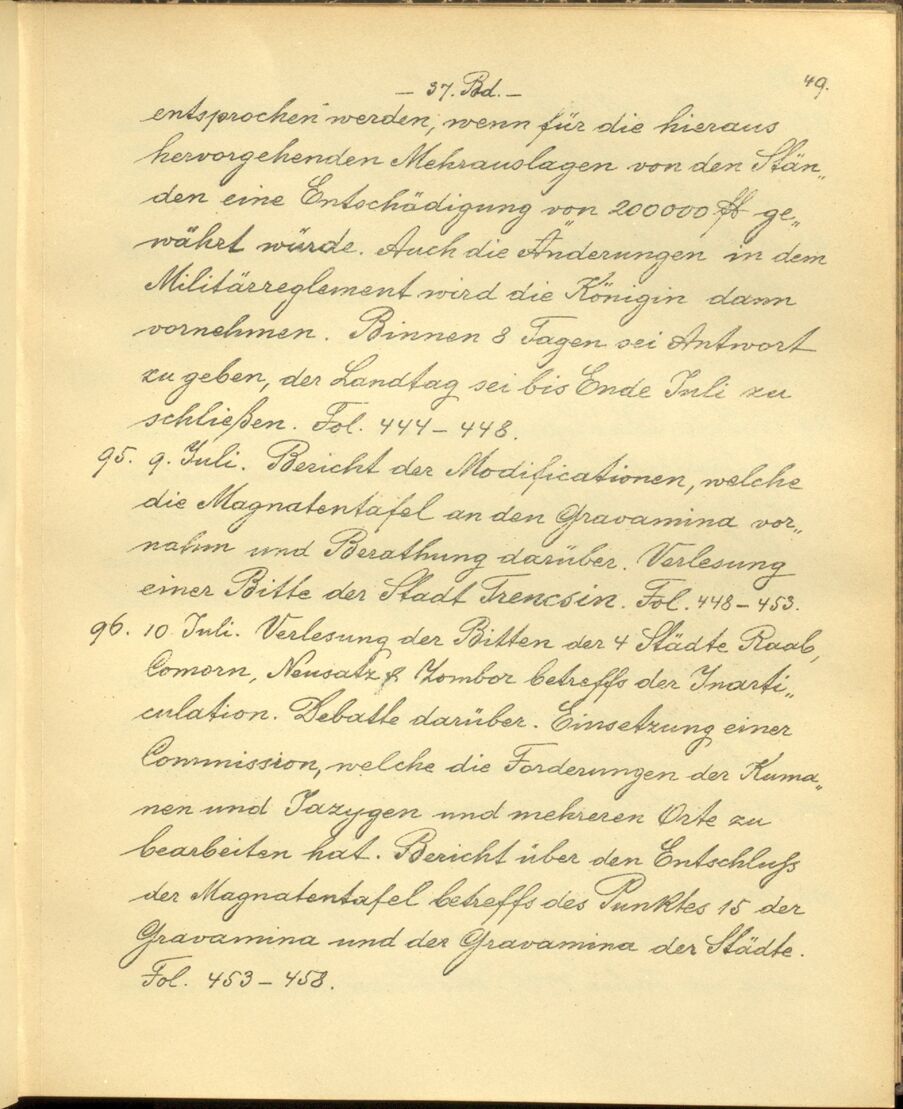 — 37. Bd. —
49.
entsprochen werden, wenn für die hieraus
hervorgehenden Mehrauslagen von den Stän„
den eine Entschädigung von 200000 fl ge„
währt würde. Auch die Änderungen in dem
Militärreglement wird die Königin dann
vornehmen. Binnen 8 Tagen sei Antwort
zu geben, der Landtag sei bis Ende Juli zu
schließen. Fol. 444 – 448.
95. 9. Juli. Bericht der Modificationen, welche
die Magnatentafel an den Gravamina vor„
nahm und Berathung darüber. Verlesung
einer Bitte der Stadt Trencsin. Fol. 448 – 453.
96. 10 Juli. Verlesung der Bitten der 4 Städte Raab,
Comorn, Neusatz & Zombor betreffs der Inarti„
culation. Debatte darüber. Einsetzung einer
Commission, welche die Forderungen der Kuma„
nen und Jazygen und mehreren Orte zu
bearbeiten hat. Bericht über den Entschluss
der Magnatentafel betreffs des Punktes 15 der
Gravamina und der Gravamina der Städte.
Fol. 453 – 458.